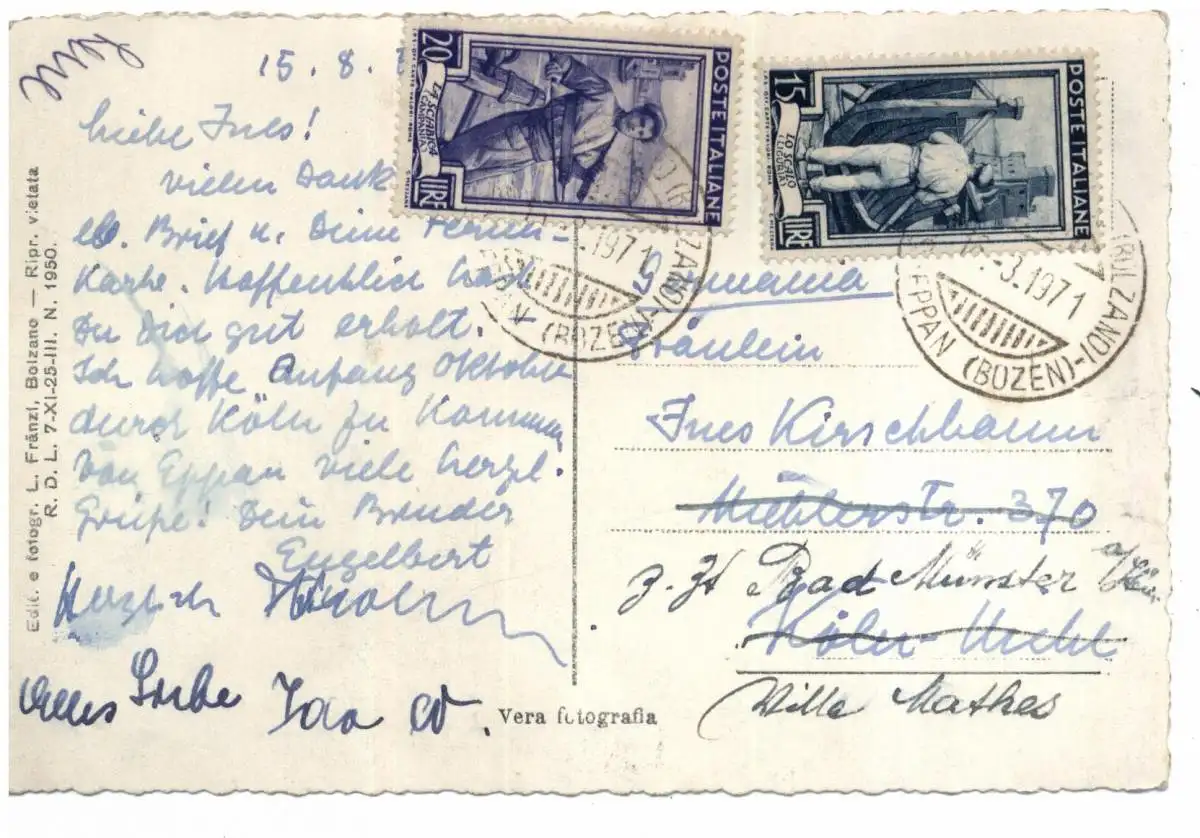 15. 8.
Liebe Ines!
vielen Dank
lb. Brief u. Deine
Karte. Hoffentlich hast
Du Dich gut erholt. -
Ich hoffe Anfang Oktober
durch Köln zu kommen
Von Eppan viele herzl.
Grüße! Dein Bruder
Engelbert
Herzlich
Alles Liebe
Vera fotografia
Edit. e fotogr. L. Fränzl, Bolzano — Ripr. vietata
R. D. L. 7-XI-25-III. N. 1950.
POSTE ITALIANE
20
LIRE
LA SCIABICA
(CAMPANIA)
POSTE ITALIANE
15
LIRE
LO SCALO
(LIGURIA)
.1971
ZANO)
(BOZEN)-
-3.1971
EPPAN (BOZEN)-
(BOLZANO)
Germania
Fräulein
Ines Kirschbaum
Mühlenstr. 370
z. Zt. Bad Münster a/
Köln-
Villa Mathes